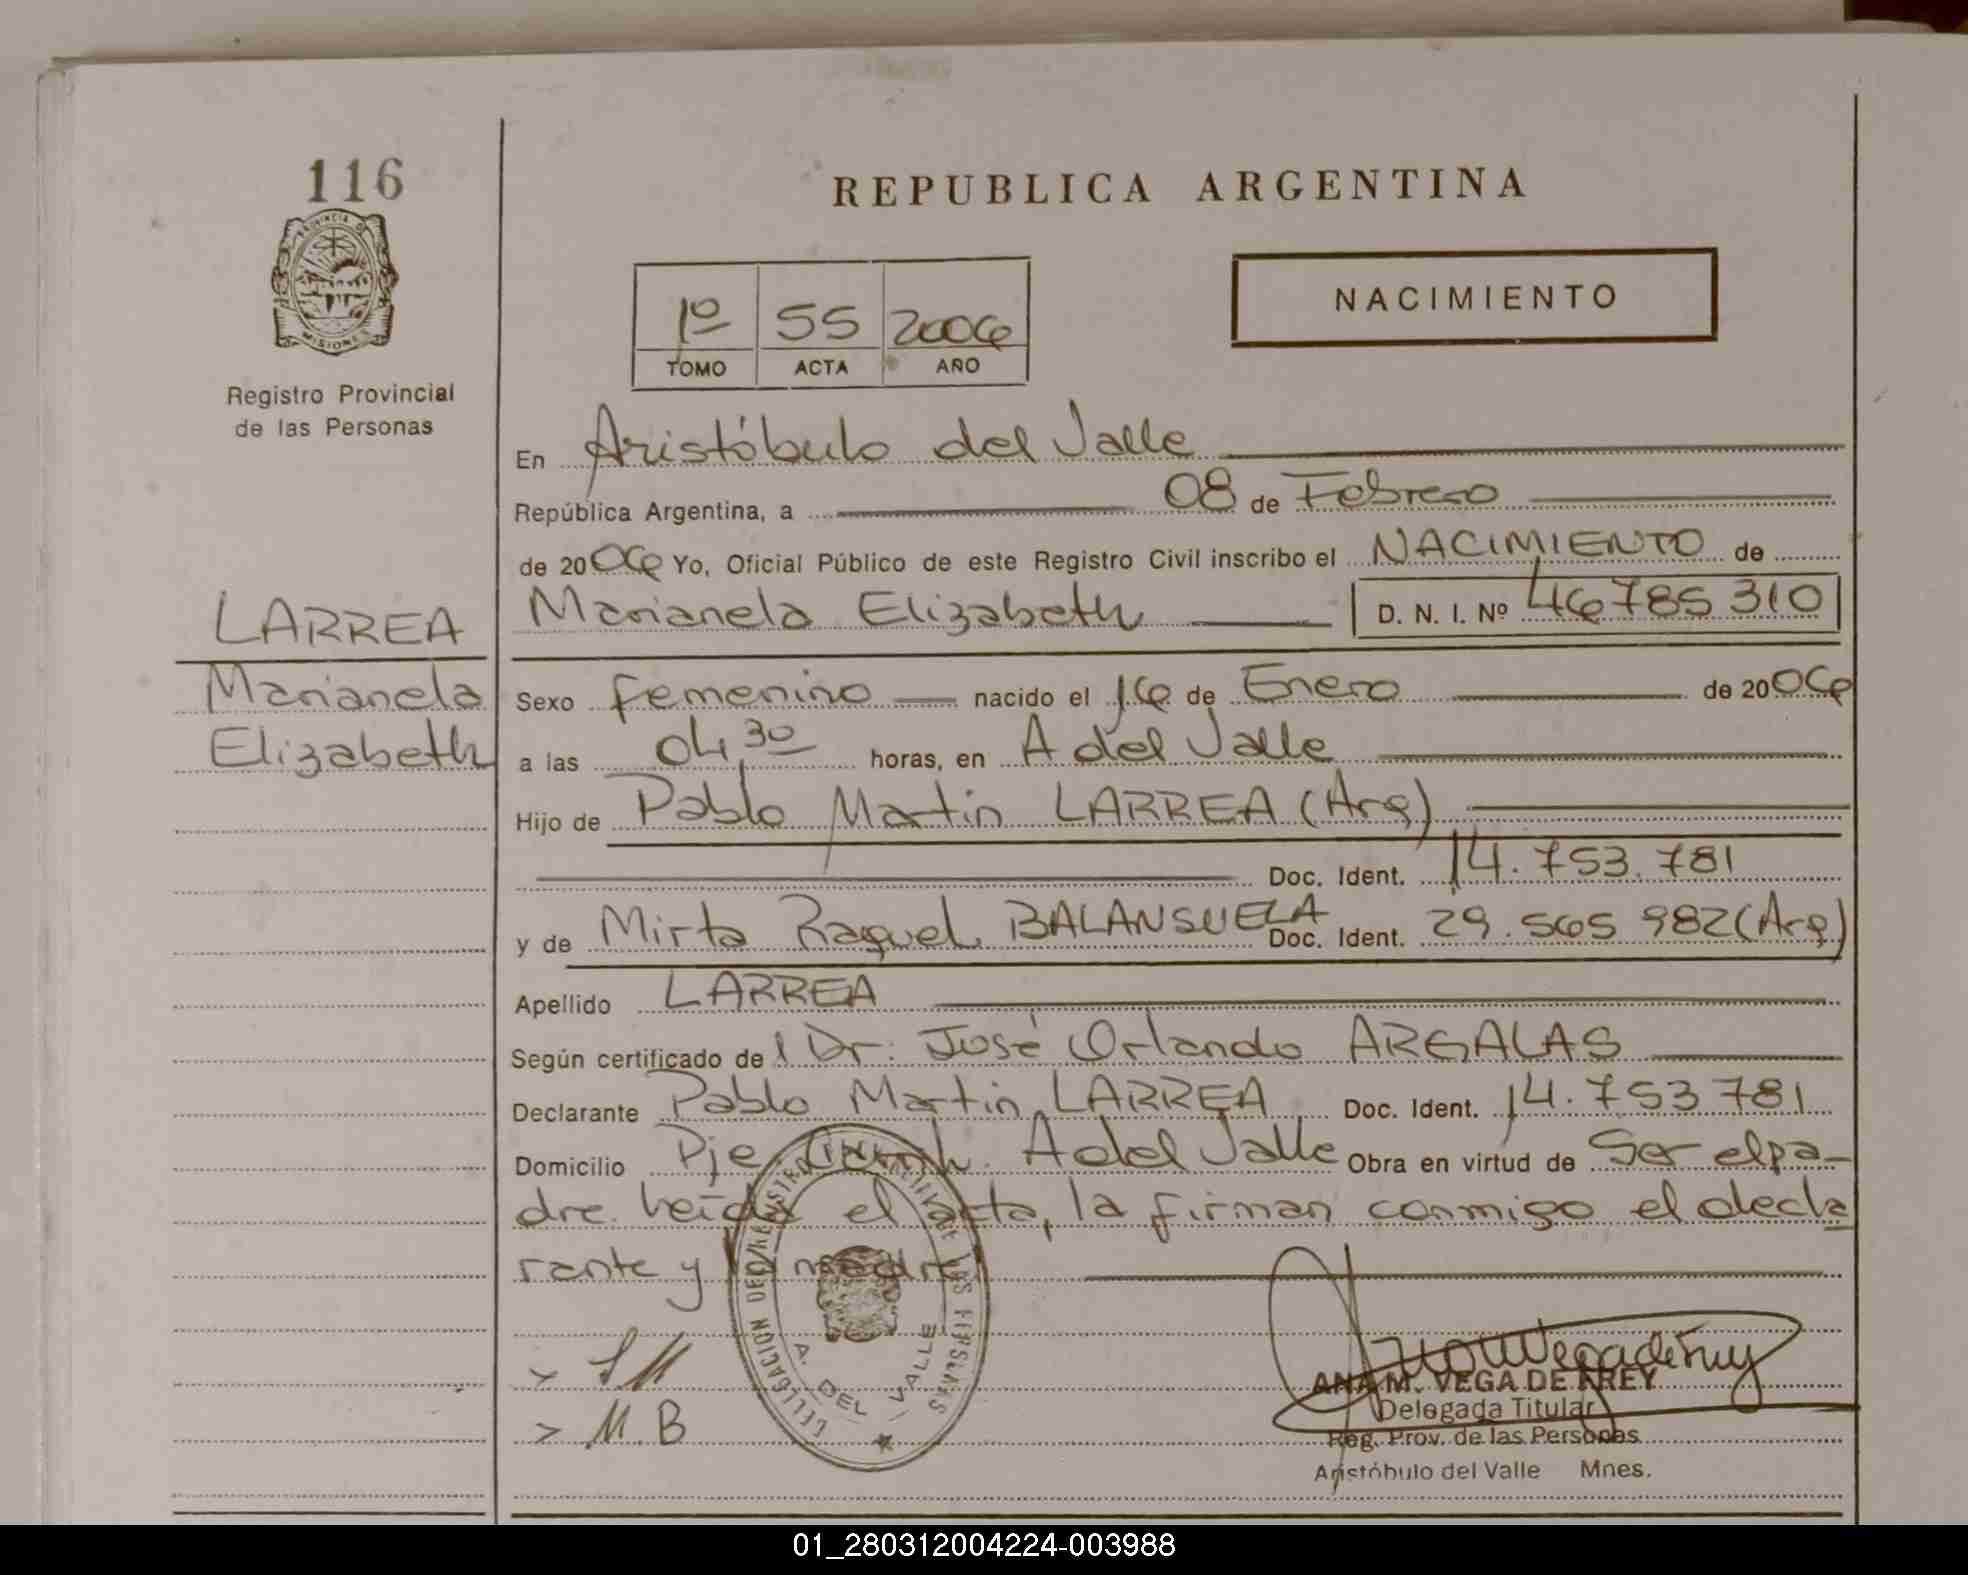 116
PROVINCIA DE
MISIONES
Registro Provincial
de las Personas
LARREA
Marianela
Elizabeth
REPUBLICA ARGENTINA
1º 55 2006
TOMO ACTA AÑO
NACIMIENTO
En Aristóbulo del Valle
República Argentina, a 08 de Febrero
de 2006 Yo, Oficial Público de este Registro Civil inscribo el NACIMIENTO de
Marianela Elizabeth D. N. I. Nº 46785310
Sexo femenino nacido el 16 de Enero de 2006
a las 04,30 horas, en A del Valle
Hijo de Pablo Martin LARREA (Arg)
Doc. Ident. 14.753.781
y de Mirta Raquel BALANSUELA Doc. Ident. 29.565 982 (Arg)
Apellido LARREA
Según certificado de l Dr. José Orlando ARGALAS
Declarante Pablo Martin LARREA Doc. Ident. 14.753 781
Domicilio Pje A del Valle Obra en virtud de Ser el pa-
dre. Leída el acta, la firman conmigo el decla
rante y la madre
L M
M. B
A. DEL VALLE
ANA M. VEGA DE FREY
Delegada Titular
Reg. Prov. de las Personas
Aristóbulo del Valle Mnes.
01_280312004224-003988